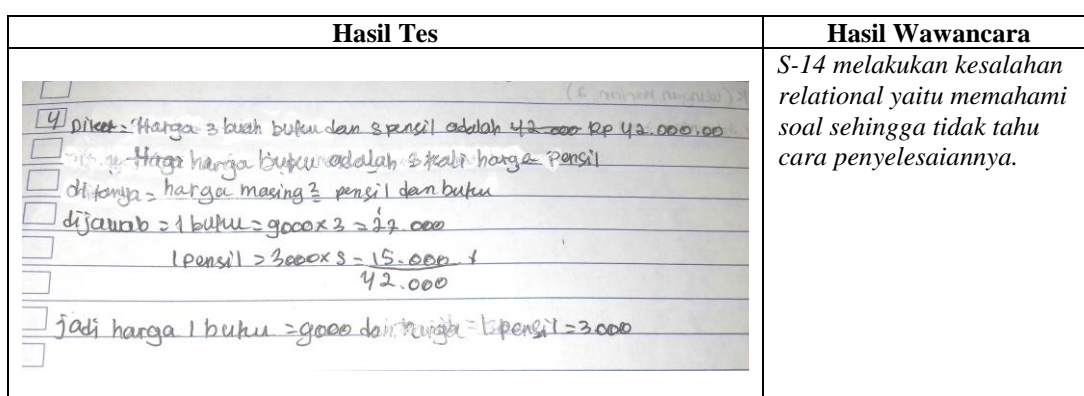 Hasil Tes
Hasil Wawancara
4 Diket = Harga 3 buah buku dan 5 pensil adalah 42.000 Rp 42.000.00
Harga harga buku adalah 3 kali harga pensil
ditanya = harga masing2 pensil dan buku
dijawab = 1 buku = 9000 x 3 = 27.000
1 pensil = 3000 x 5 = 15.000 +
42.000
jadi harga 1 buku = 9000 dan harga 1 pensil = 3.000
S-14 melakukan kesalahan
relational yaitu memahami
soal sehingga tidak tahu
cara penyelesaiannya.